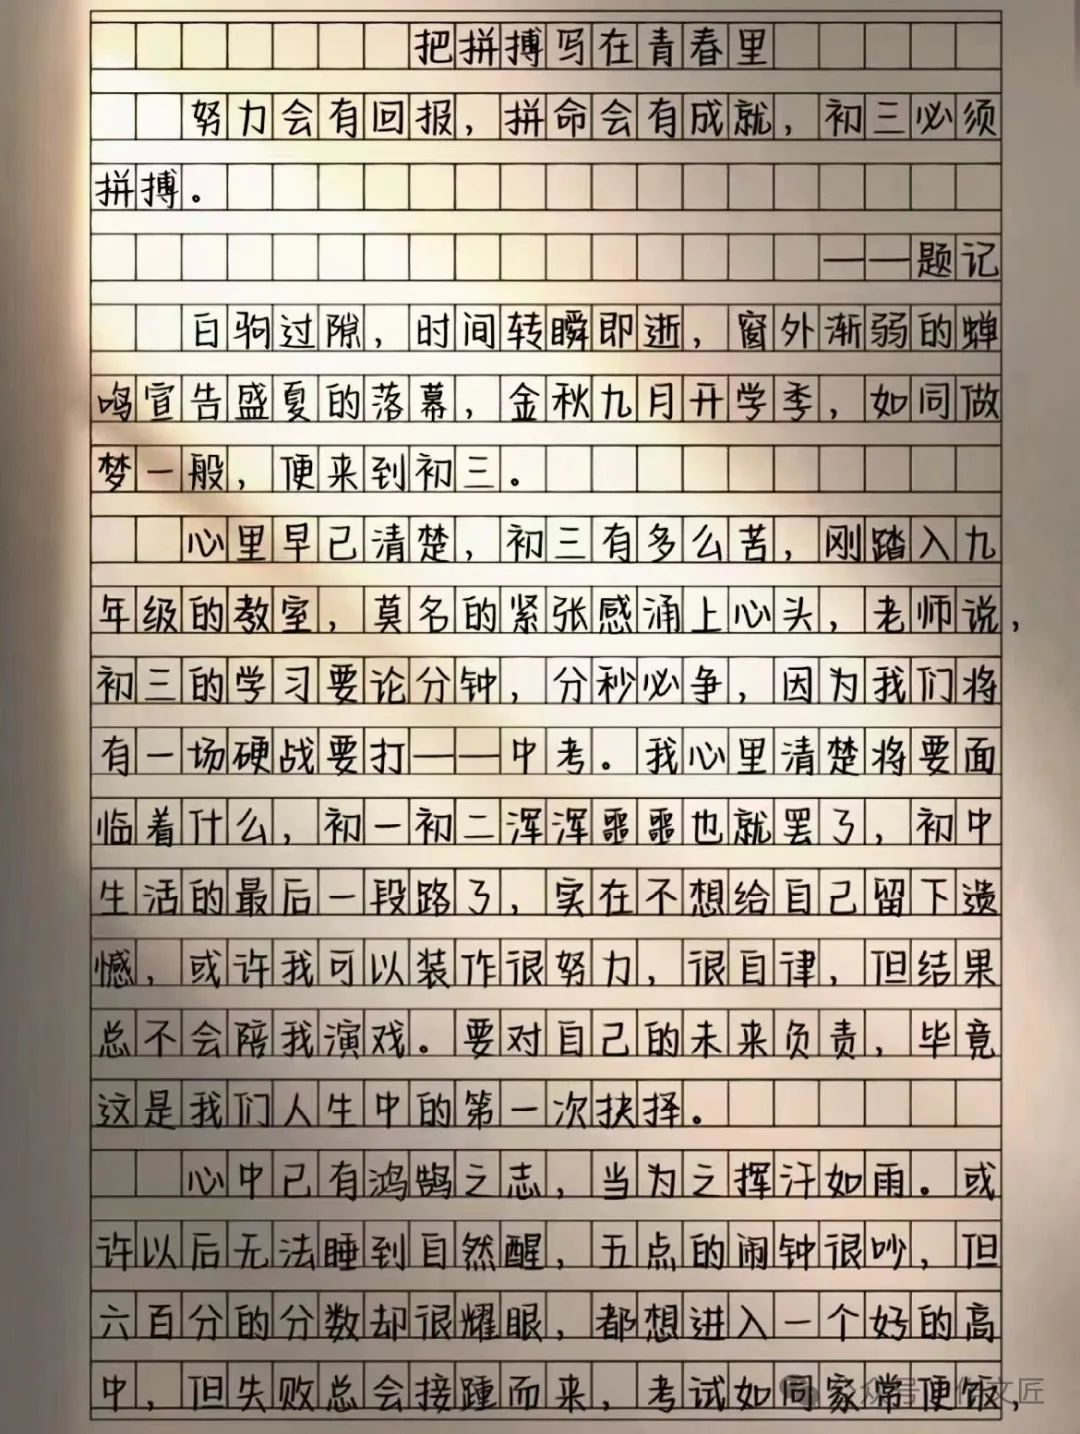 把拼搏写在青春里
努力会有回报，拼命会有成就，初三必须
拼搏。
——题记
白驹过隙，时间转瞬即逝，窗外渐弱的蝉
鸣宣告盛夏的落幕，金秋九月开学季，如同做
梦一般，便来到初三。
心里早已清楚，初三有多么苦，刚踏入九
年级的教室，莫名的紧张感涌上心头，老师说，
初三的学习要论分钟，分秒必争，因为我们将
有一场硬战要打——中考。我心里清楚将要面
临着什么，初一初二浑浑噩噩也就罢了，初中
生活的最后一段路了，实在不想给自己留下遗
憾，或许我可以装作很努力，很自律，但结果
总不会陪我演戏。要对自己的未来负责，毕竟
这是我们人生中的第一次抉择。
心中已有鸿鹄之志，当为之挥汗如雨。或
许以后无法睡到自然醒，五点的闹钟很吵，但
六百分的分数却很耀眼，都想进入一个好的高
中，但失败总会接踵而来，考试如同家常便饭，
公众号 文匠